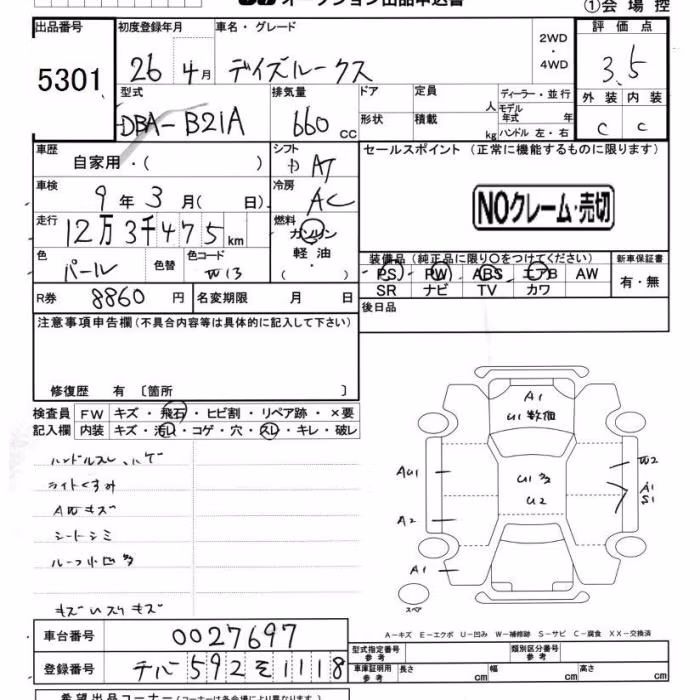 オークション出品申込書 ①会場控
出品番号 5301
初度登録年月 26 4月
車名・グレード デイズルークス
2WD・4WD
評価点 3.5
外装 内装
C C
型式 DBA-B21A
排気量 660 cc
ドア 定員 人
形状 積載 kg
ディーラー・並行
モデル年式 年
ハンドル 左・右
車歴 自家用・( )
シフト AT
セールスポイント (正常に機能するものに限ります)
車検 9年3月( 日)
冷房 AC
NOクレーム・売切
走行 12万3千475km
燃料 ガソリン
軽油
( ・ )
色 パール 色替 色コード W13
装備品(純正品に限り○をつけてください) 新車保証書
PS PW ABS エアB AW 有・無
SR ナビ TV カワ
R券 8860円 名変期限 月 日
後日品
注意事項申告欄(不具合内容等は具体的に記入して下さい)
修復歴 有 〔箇所 〕
検査員 FW キズ・飛石・ヒビ割・リペア跡・×要
記入欄 内装 キズ・汚れ・コゲ・穴・スレ・キレ・破レ
ハンドルスレ、ハゲ
ライトくすみ
AWキズ
シートシミ
ルーフ小凹多
キズ いスリキズ
A1
U1数個
AU1 U1多 W2
U2 A1
S1
A2
A1
スペア
A-キズ E-エクボ U-凹み W-補修跡 S-サビ C-腐食 XX-交換済
車台番号 0027697
登録番号 チバ592そ1118
型式指定番号 参考 類別区分番号 参考
車庫証明用 参考 長さ cm 幅 cm 高さ cm
希望出品コーナー(コーナーは各会場により異なります。)